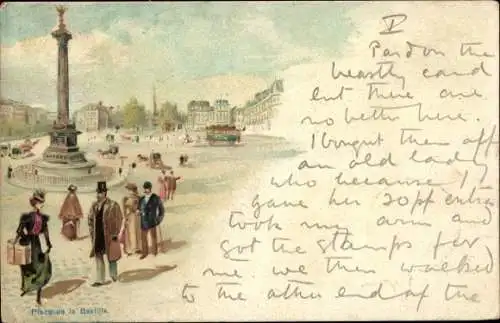 V
Pardon the
beastly card
but there are
no better here.
I bought them off
an old lady
who because I
gave her 20 pf extra
took my arm and
got the stamps for
me we then walked
to the other end of the
Place de la Bastille.